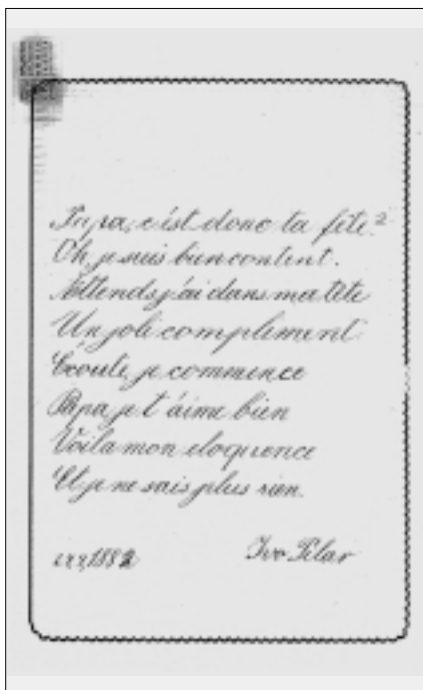 Papa, c'est donc ta fête?
Oh, je suis bien content.
Attends j'ai dans ma tête
Un joli complement
Ecoute, je commence
Papa je t'aime bien
Voila mon eloquence
Et je ne sais plus rien.
1882 Ivo Pilar